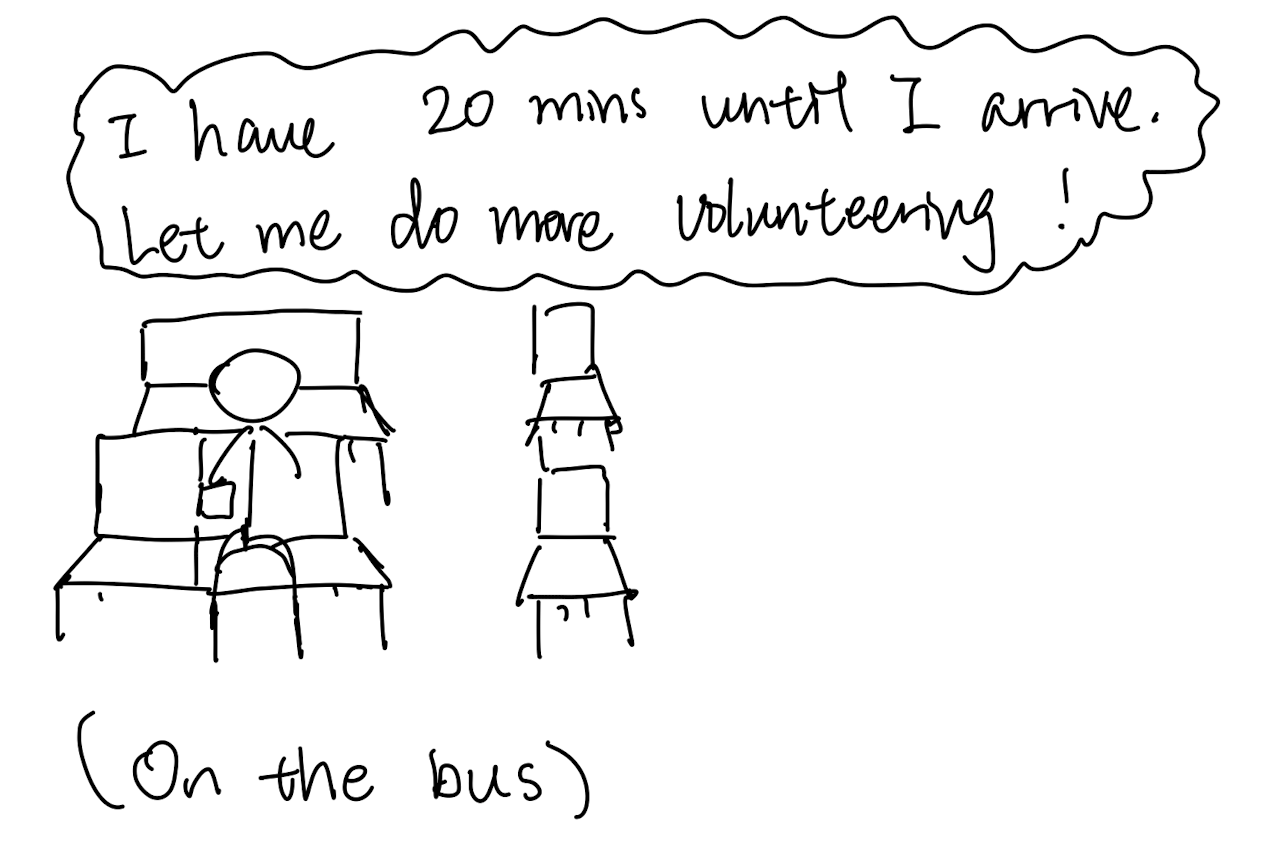 I have 20 mins until I arrive.
Let me do more volunteering!
(On the bus)